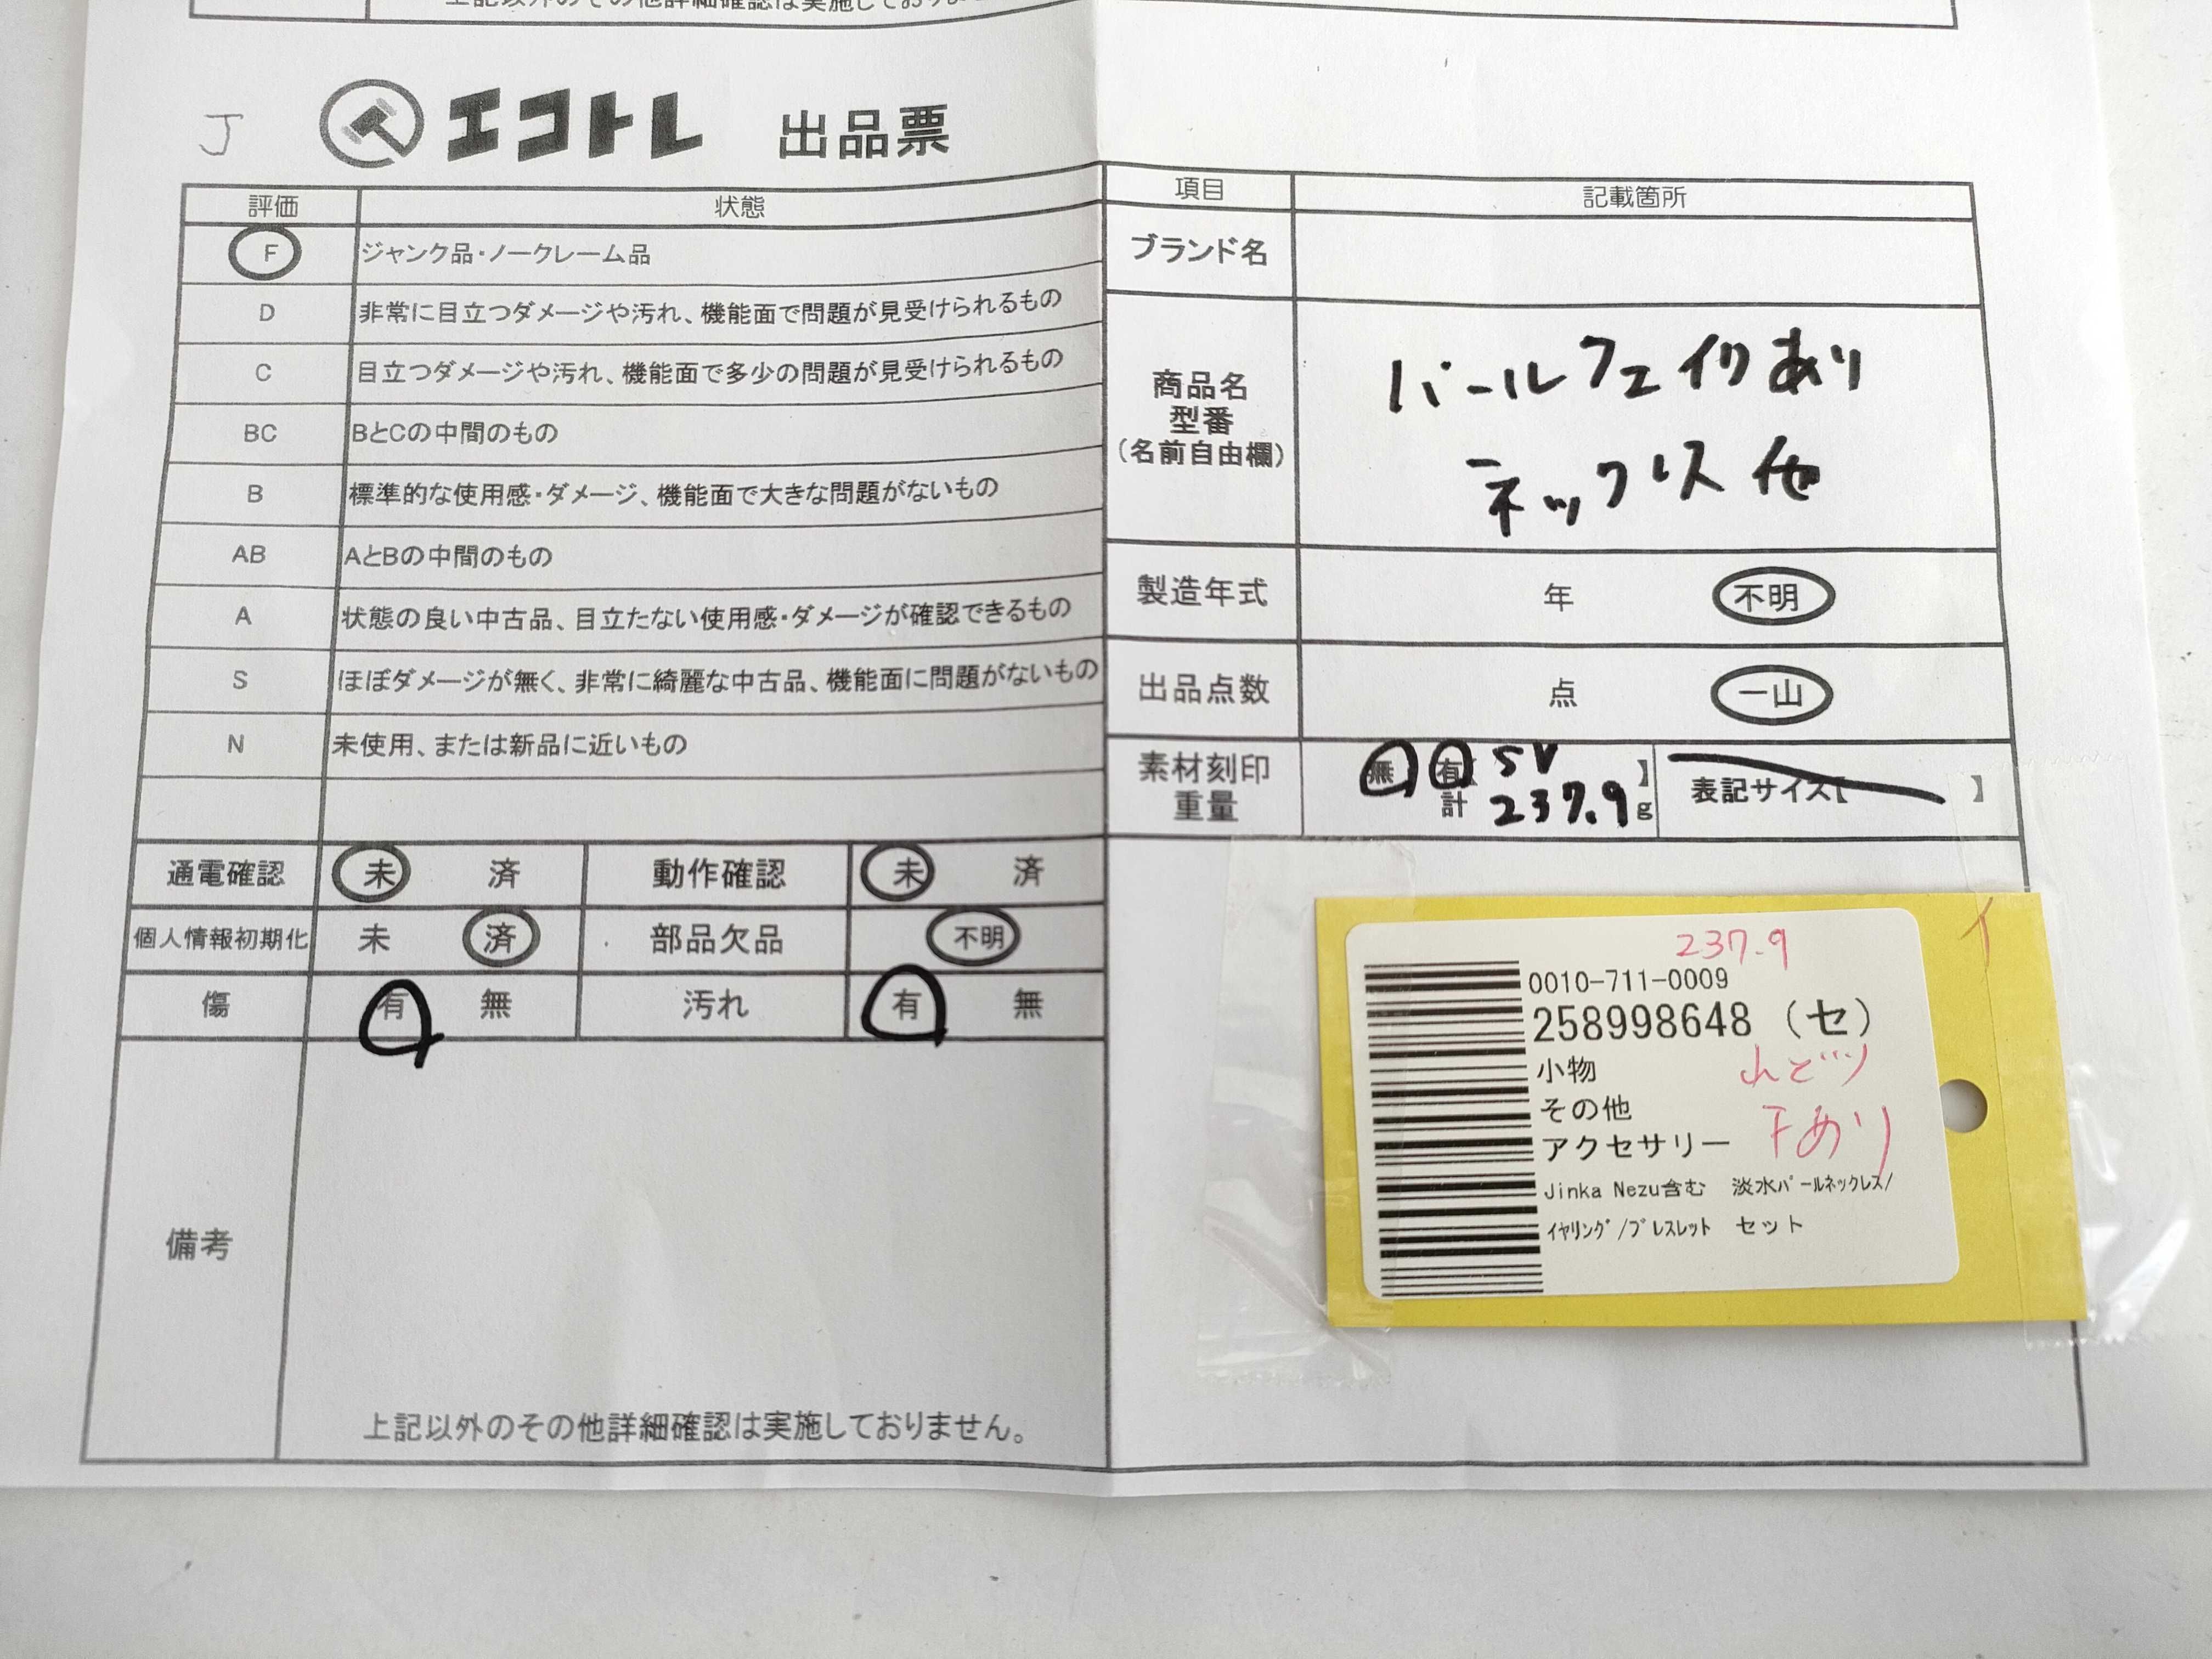 上記以外のその他詳細確認は実施しており
J
エコトレ 出品票
評価 状態
F ジャンク品・ノークレーム品
D 非常に目立つダメージや汚れ、機能面で問題が見受けられるもの
C 目立つダメージや汚れ、機能面で多少の問題が見受けられるもの
BC BとCの中間のもの
B 標準的な使用感・ダメージ、機能面で大きな問題がないもの
AB AとBの中間のもの
A 状態の良い中古品、目立たない使用感・ダメージが確認できるもの
S ほぼダメージが無く、非常に綺麗な中古品、機能面に問題がないもの
N 未使用、または新品に近いもの
通電確認 未 済 動作確認 未 済
個人情報初期化 未 済 部品欠品 不明
傷 有 無 汚れ 有 無
備考
上記以外のその他詳細確認は実施しておりません。
項目 記載箇所
ブランド名
商品名
型番
(名前自由欄)
パールフェイクあり
ネックレス 他
製造年式 年 不明
出品点数 点 一山
素材刻印
重量
無 有【 SV 】
計 237.9 g
表記サイズ【 】
237.9
イ
0010-711-0009
258998648 (セ)
小物
その他
アクセサリー
Jinka Nezu含む 淡水パールネックレス/
イヤリング/ブレスレット セット